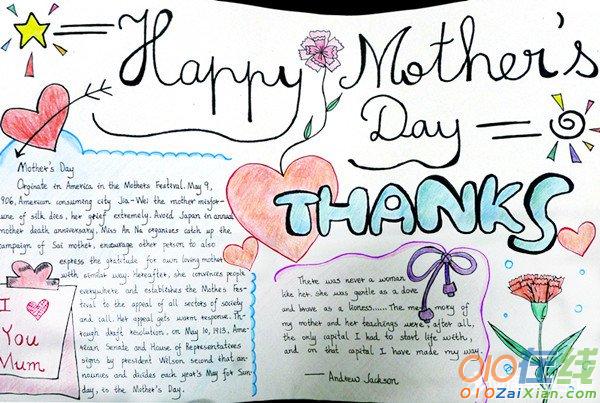 Happy Mother's
Day
THANKS
Mother's Day
Orginate in America in the Mothers Festival. May 9,
906, American consuming city Jia-Wei the mother misfor-
tune of silk dies, her grief extremely. Avoid Japan in annual
mother death anniversary, Miss An Na organises catch up the
campaign of Sai mother, encourage other person to also
express the gratitude for own loving mother
with similar way. Hereafter, she convinces people
everywhere and establishes the Mothes Fes-
tival to the appeal of all sectors of society
and call. Her appeal gets worm response. Th-
rough draft resolution, on May 10, 1913, Ame-
rican Senate and House of Representatives
signs by president Wilson second that an-
nounces and decides each year's May for Sun-
day, is the Mother's Day.
I
You
Mum
There was never a woman
like her. she was gentle as a dove
and brave as a lioness...... The memory of
my mother and her teachings were after all,
the only capital I had to start life with,
and on that capital I have made my way.
—— Andrew Jackson
010在线
010ZaiXian.com